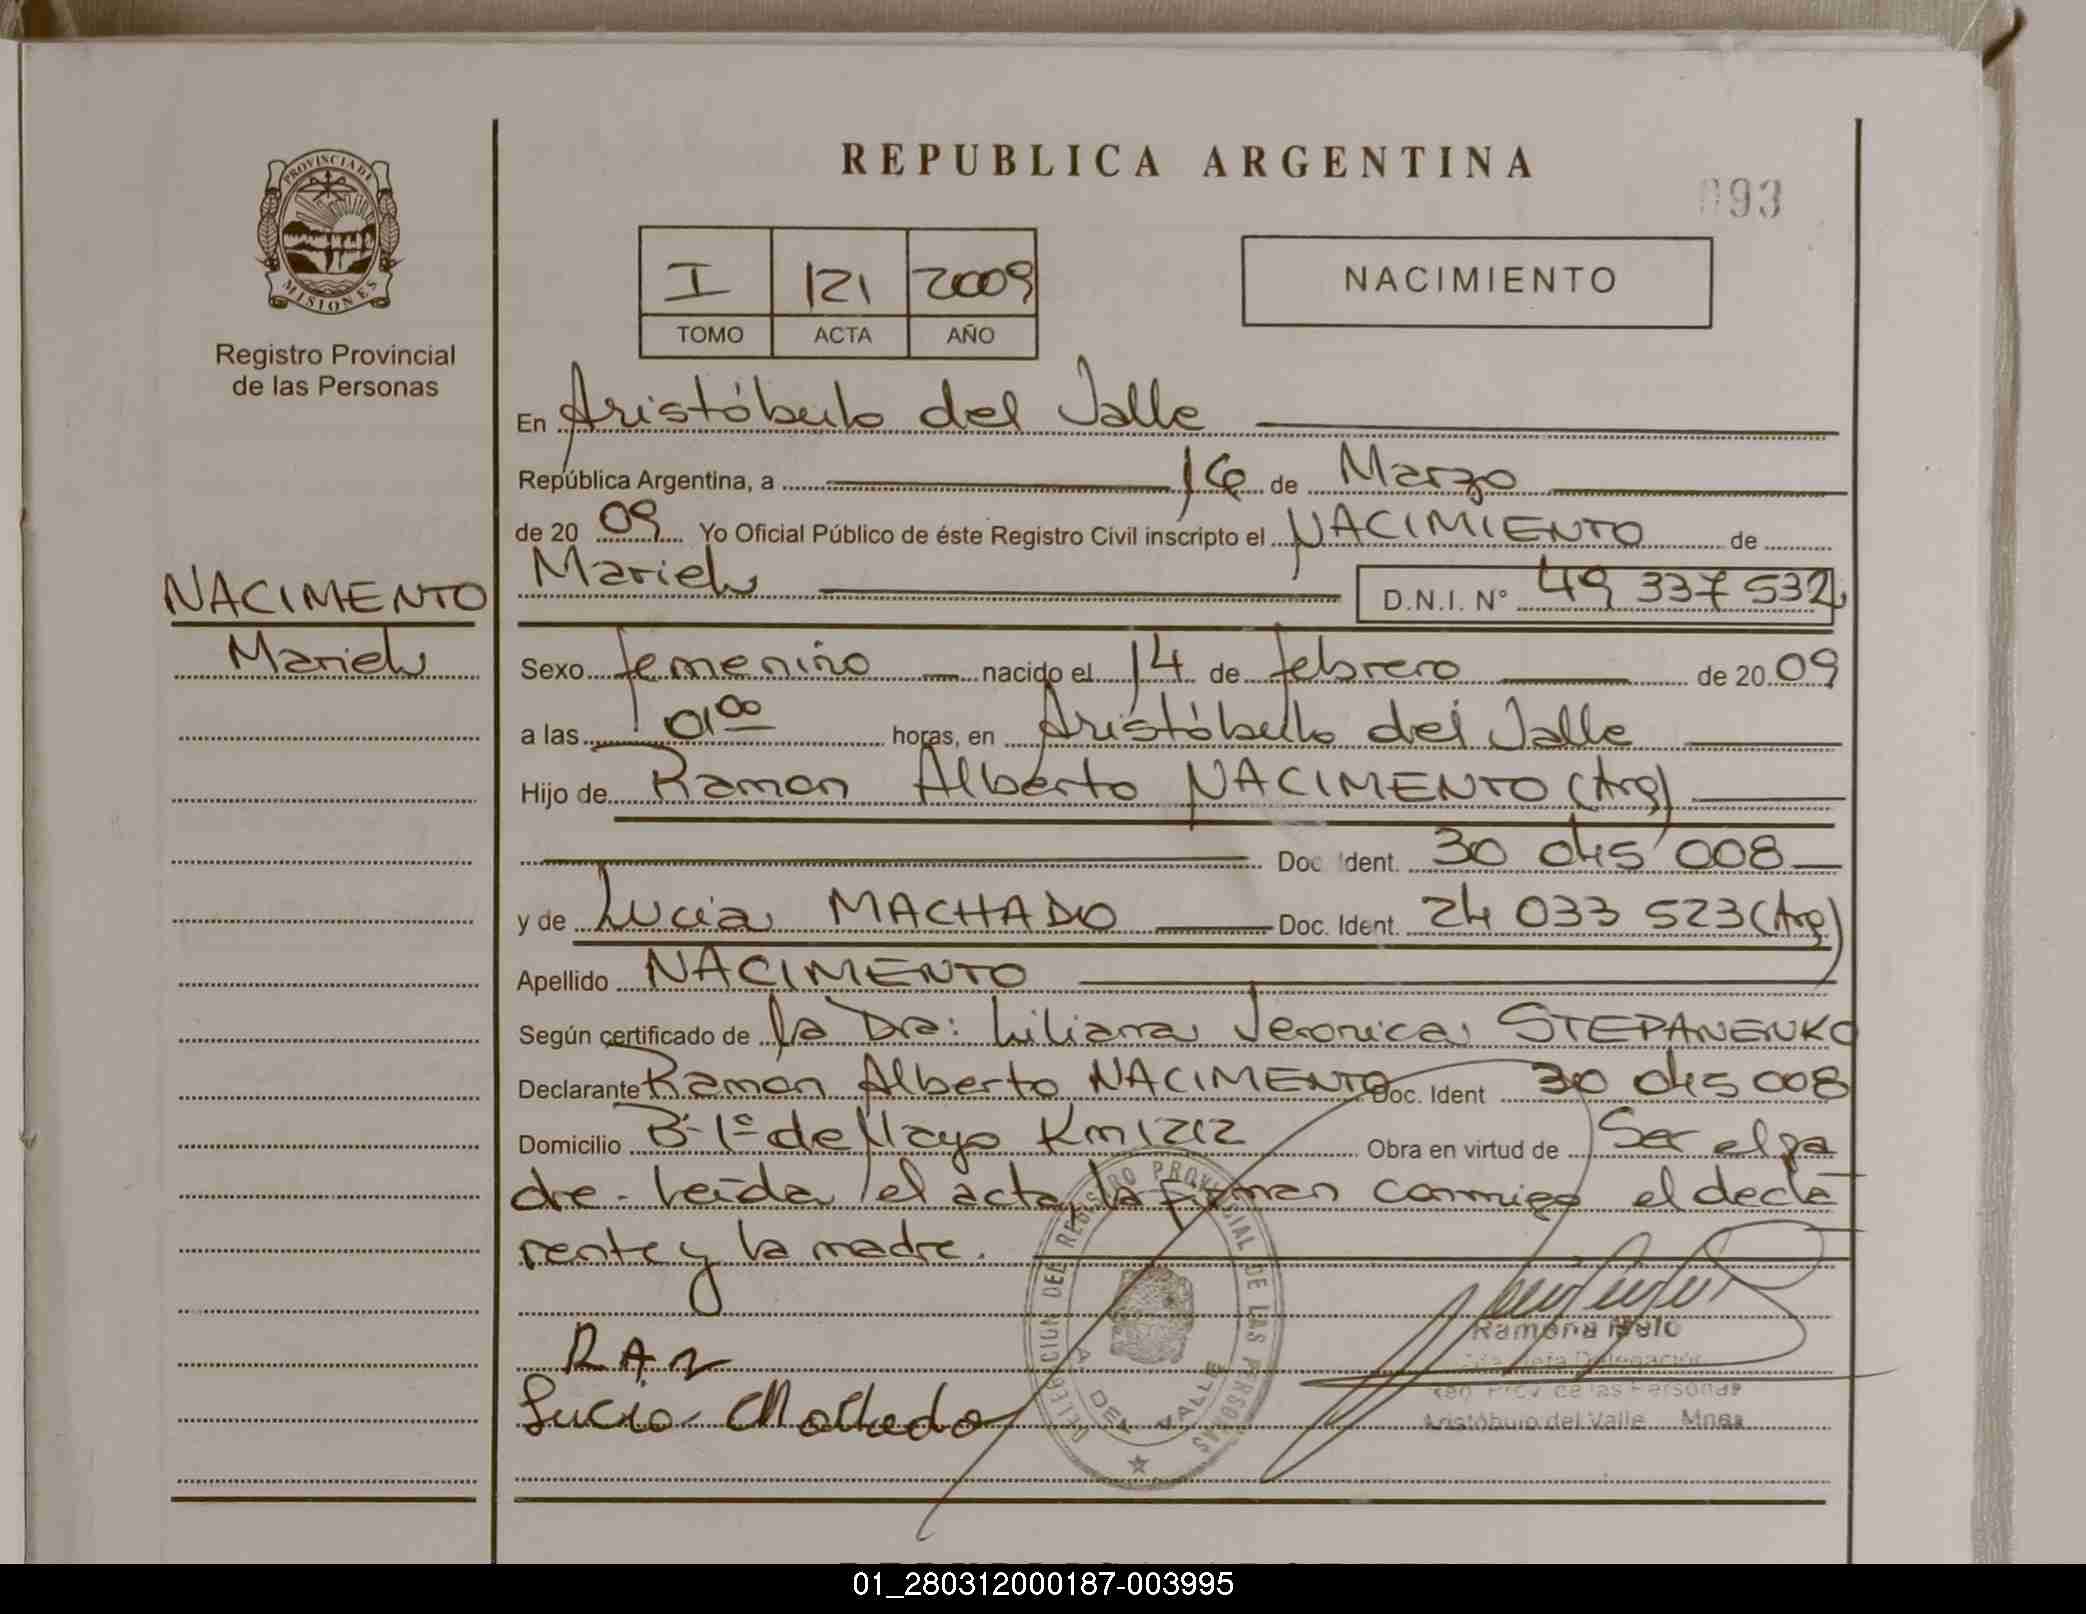 REPUBLICA ARGENTINA
093
PROVINCIA DE MISIONES
Registro Provincial
de las Personas
I 121 2009
TOMO ACTA AÑO
NACIMIENTO
En Aristóbulo del Valle
República Argentina, a 16 de Marzo
de 20 09 Yo Oficial Público de éste Registro Civil inscripto el NACIMIENTO de
Mariela D.N.I. N° 49 337 532
NACIMENTO
Mariela
Sexo femenino nacido el 14 de febrero de 20 09
a las 01 00 horas, en Aristóbulo del Valle
Hijo de Ramon Alberto NACIMENTO (Arg)
Doc. Ident. 30 045 008
y de Lucia MACHADO Doc. Ident. 24 033 523 (Arg)
Apellido NACIMENTO
Según certificado de la Dra: Liliana Veronica STEPANENKO
Declarante Ramon Alberto NACIMENTO Doc. Ident 30 045 008
Domicilio Bº 1º de Mayo Km 1212 Obra en virtud de Ser el pa
dre - Leida el acta, la firman conmigo el decla
rante y la madre.
R A N
Lucia Machado
DELEGACION DEL REGISTRO PROVINCIAL DE LAS PERSONAS
DEL VALLE
Ramona Melo
Delegación
Reg. Prov. de las Personas
Aristóbulo del Valle Mnes
01_280312000187-003995